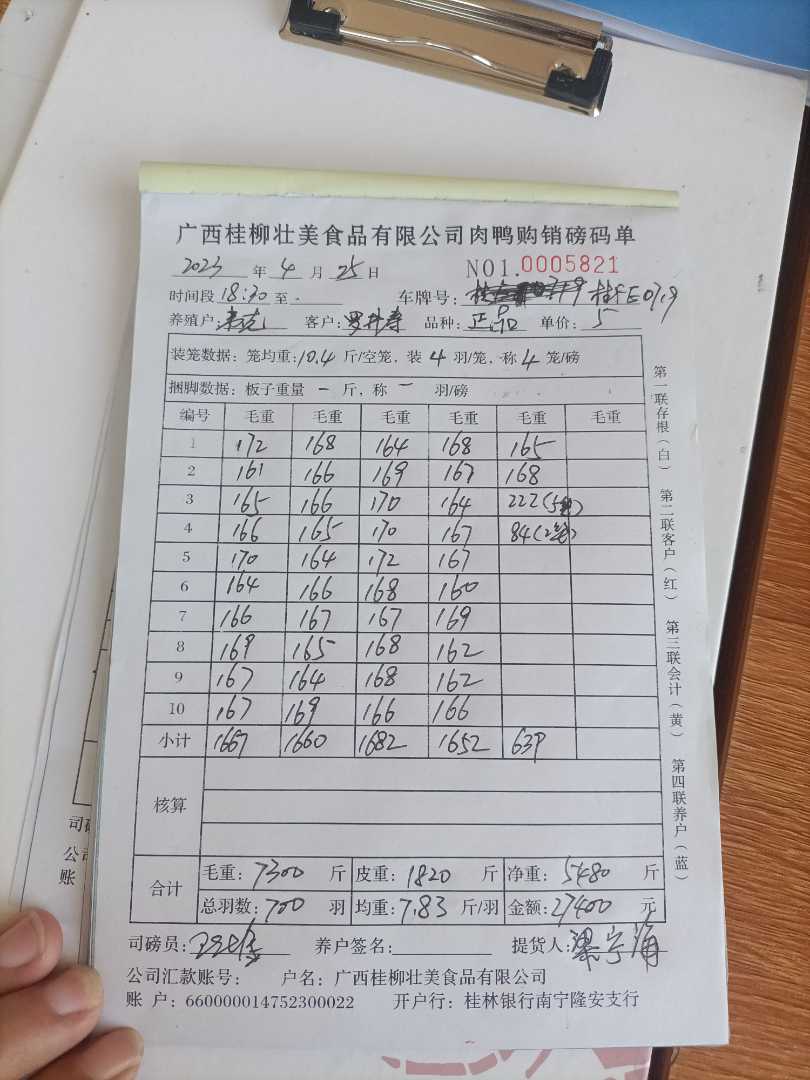 广西桂柳壮美食品有限公司肉鸭购销磅码单
2023年4月25日 NO1.0005821
时间段18:30至- 车牌号: 桂E0719
养殖户: 客户: 品种:正品 单价:5
装笼数据:笼均重:10.4斤/空笼,装4羽/笼,称4笼/磅
捆脚数据:板子重量一斤,称一羽/磅
编号 毛重 毛重 毛重 毛重 毛重 毛重
1 172 168 164 168 165
2 161 166 169 167 168
3 165 166 170 164 222(5笼)
4 166 165 170 167 84(2笼)
5 170 164 172 167
6 164 166 168 160
7 166 167 167 169
8 169 165 168 162
9 167 164 168 162
10 167 169 166 166
小计 1667 1660 1682 1652 639
核算
合计 毛重:7300斤 皮重:1820斤 净重:5480斤
总羽数:700羽 均重:7.83斤/羽 金额:27400元
司磅员: 养户签名: 提货人:
公司汇款账号: 户名:广西桂柳壮美食品有限公司
账 户:660000014752300022 开户行:桂林银行南宁隆安支行
第一联存根(白) 第二联客户(红) 第三联会计(黄) 第四联养户(蓝)
司磅
公司
账